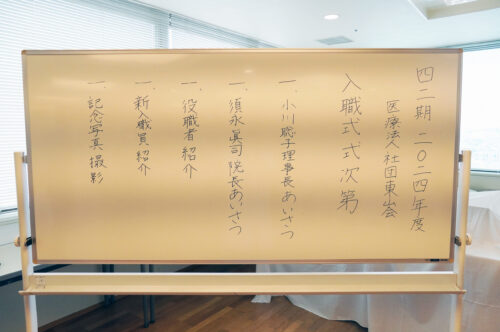 四二期 二〇二四年度
医療法人社団東山会
入職式式次第
一、小川聡子理事長あいさつ
一、須永眞司院長あいさつ
一、役職者紹介
一、新入職員紹介
一、記念写真撮影